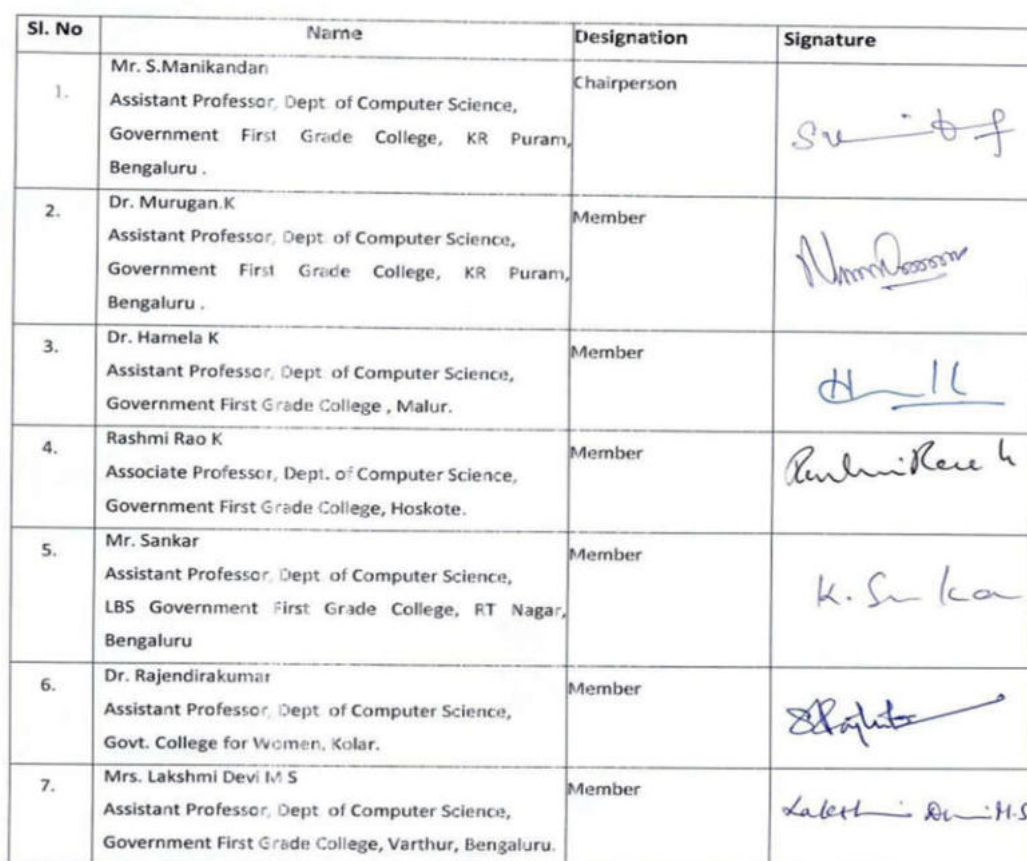 Sl. No Name Designation Signature
1. Mr. S.Manikandan Chairperson
Assistant Professor, Dept. of Computer Science,
Government First Grade College, KR Puram,
Bengaluru .
2. Dr. Murugan.K Member
Assistant Professor, Dept. of Computer Science,
Government First Grade College, KR Puram,
Bengaluru .
3. Dr. Hamela K Member
Assistant Professor, Dept. of Computer Science,
Government First Grade College , Malur.
4. Rashmi Rao K Member
Associate Professor, Dept. of Computer Science,
Government First Grade College, Hoskote.
5. Mr. Sankar Member
Assistant Professor, Dept. of Computer Science, K. Sankar
LBS Government First Grade College, RT Nagar,
Bengaluru
6. Dr. Rajendirakumar Member
Assistant Professor, Dept. of Computer Science,
Govt. College for Women, Kolar.
7. Mrs. Lakshmi Devi M S Member
Assistant Professor, Dept of Computer Science, Lakshmi Devi M.S
Government First Grade College, Varthur, Bengaluru.